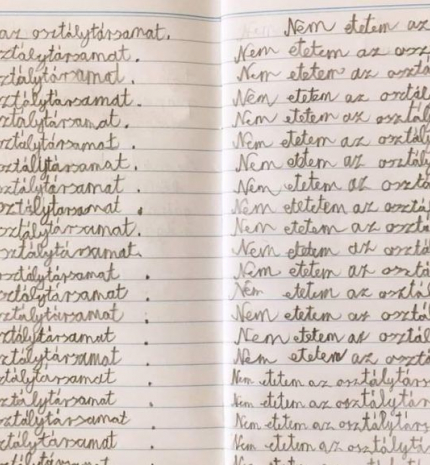 az osztálytársamat.
sztálytársamat.
sztálytársamat.
sztálytársamat.
sztálytársamat.
osztálytársamat.
osztálytársamat.
sztálytársamat.
osztálytársamat.
osztálytársamat.
osztálytársamat.
osztálytársamat.
osztálytársamat.
osztálytársamat.
osztálytársamat.
osztálytársamat.
sztálytársamat.
sztálytársamat.
osztálytársamat.
sztálytársamat.
Nem etetem az
Nem etetem az osz
Nem etetem az osztá
Nem etetem az osztál
Nem etetem az osztály
Nem etetem az osztály
Nem etetem az osztály
Nem etetem az osztá
Nem etetetem az osztá
Nem etetem az osztá
Nem etetem az osztá
Nem etetem az osztály
Nem etetem az osztál
Nem etetem az osztál
Nem etetem az osztál
Nem etetem az osztál
Nem etetem az osztálytárs
Nem etetem az osztálytárs
Nem etetem az osztálytár
Nem etetem az osztálytá